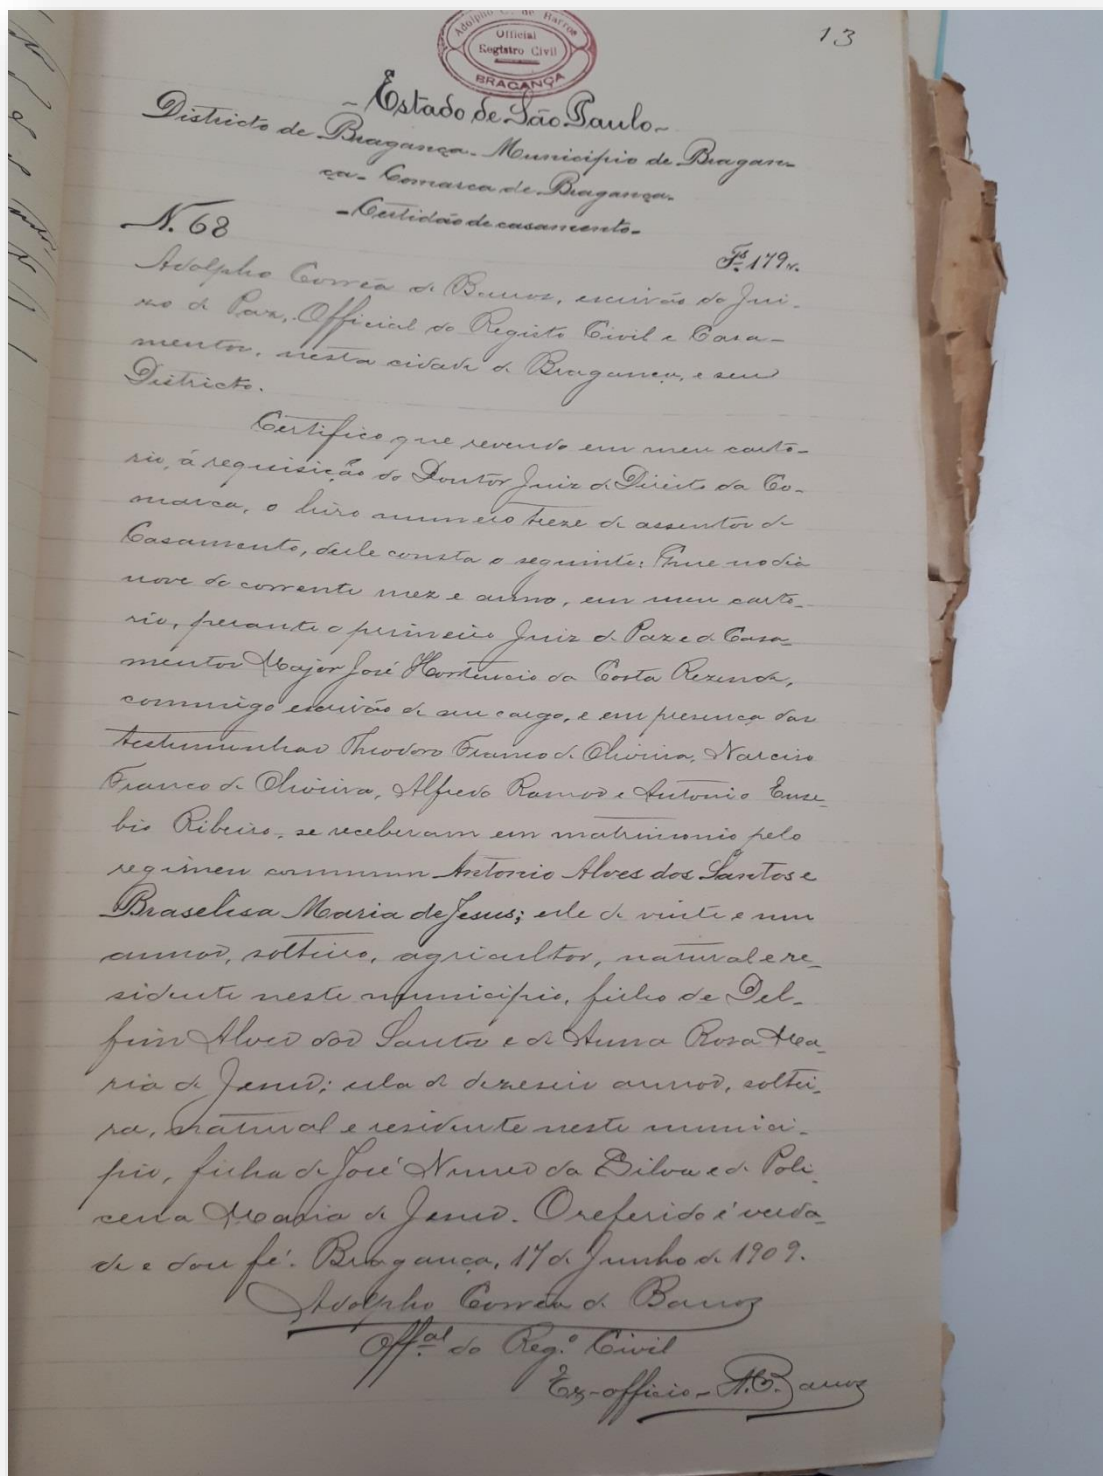 13
Adolpho C. de Barros
Official
Registro Civil
BRAGANÇA
- Estado de São Paulo -
Districto de Bragança - Municipio de Bragan-
ça - Comarca de Bragança -
- Certidão de casamento -
N. 68
Fs. 179v.
Adolpho Corrêa de Barros, escrivão do Jui-
zo de Paz, Official do Registo Civil e Casa-
mentos, nesta cidade de Bragança, e seu
Districto.
Certifico que revendo em meu carto-
rio, á requisição do Doutor Juiz de Direito da Co-
marca, o livro numero treze de assentos de
Casamento, delle consta o seguinte: Que no dia
nove do corrente mez e anno, em meu carto-
rio, perante o primeiro Juiz de Paz e de Casa-
mentos Major José Hortencio da Costa Rezende,
commigo escrivão de seu cargo, e em presença das
testemunhas Theodoro Franco de Oliveira, Narciso
Franco de Oliveira, Alfredo Ramos e Antonio Euse-
bio Ribeiro, se receberam em matrimonio pelo
regimen commum Antonio Alves dos Santos e
Braselisa Maria de Jesus; elle de vinte e um
annos, solteiro, agricultor, natural e re-
sidente neste municipio, filho de Del-
fim Alves dos Santos e de Anna Rosa Ma-
ria de Jesus; ella de dezeseis annos, soltei-
ra, natural e residente neste munici-
pio, filha de José Nunes da Silva e de Poli-
cena Maria de Jesus. O referido é verda-
de e dou fé. Bragança, 17 de Junho de 1909.
Adolpho Corrêa de Barros
Off.al do Reg.o Civil
Ex-officio - A.C. Barros